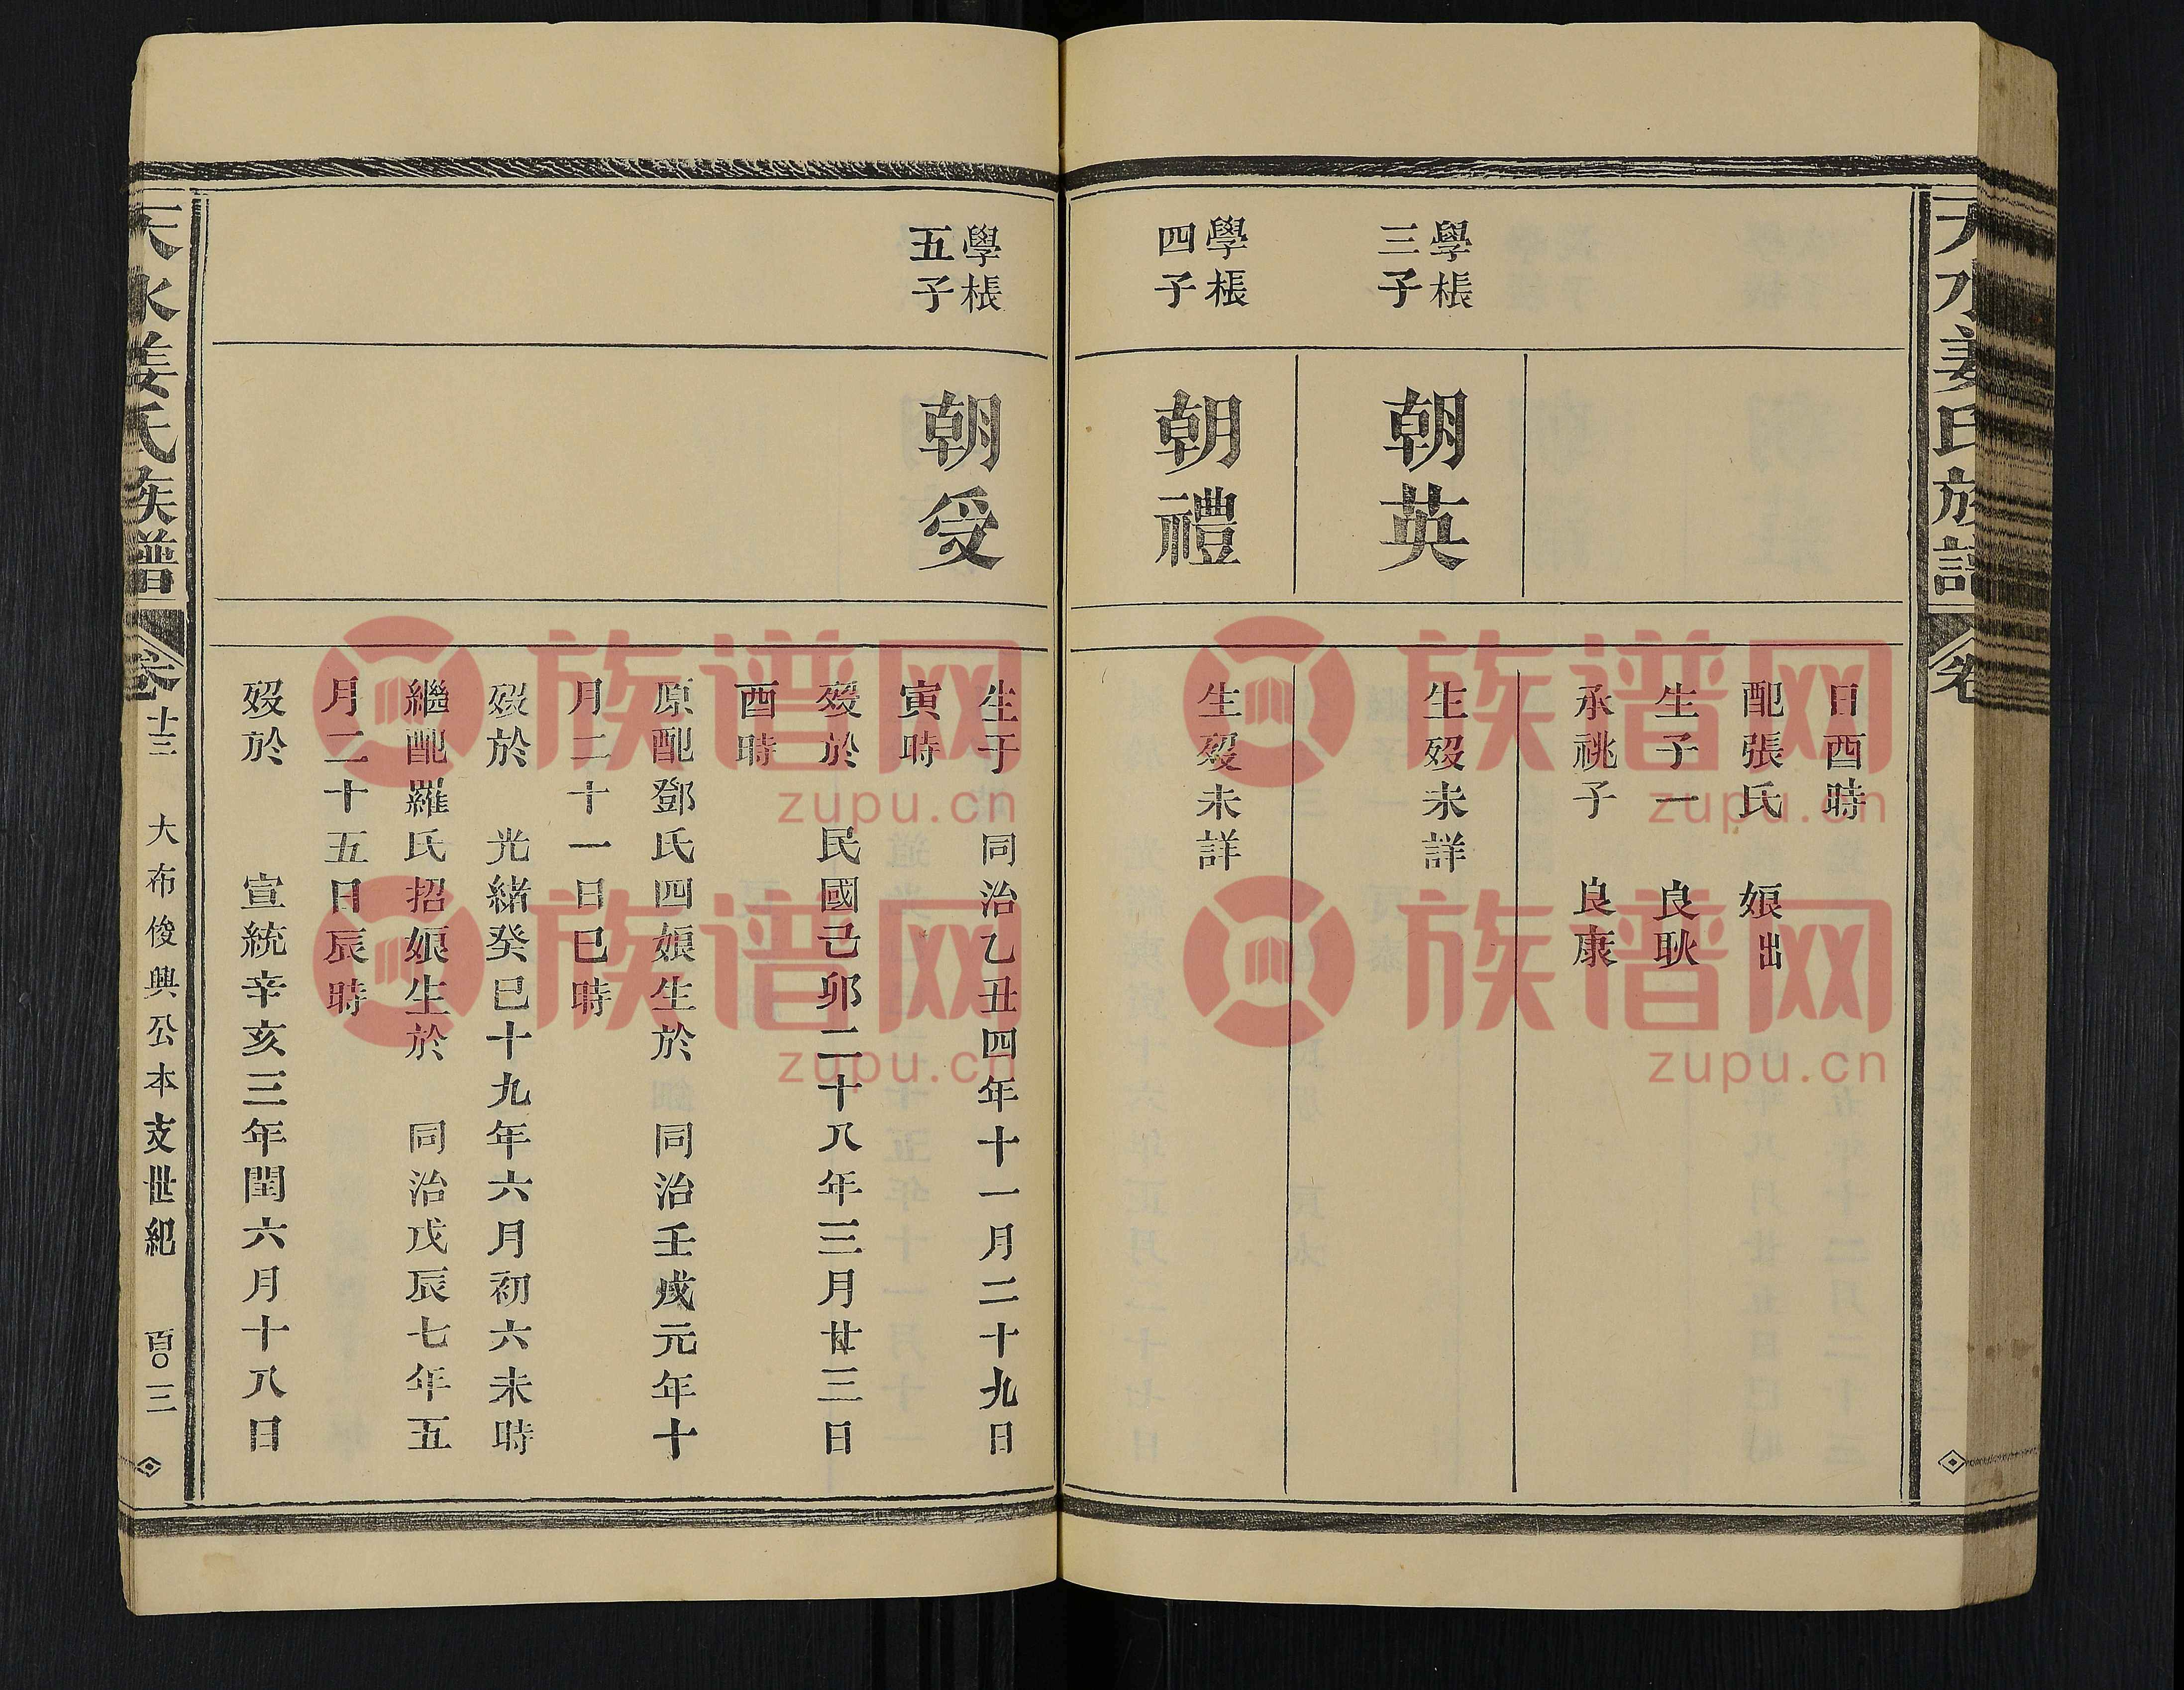 天水姜氏族譜 卷
日酉時
配張氏 娘出
生子一 良耿
承祧子 良康
學棖
三子
朝英
生歿未詳
學棖
四子
朝禮
生歿未詳
學棖
五子
朝受
生于 同治乙丑四年十一月二十九日
寅時
歿於 民國己卯二十八年三月廿三日
酉時
原配鄧氏四娘生於 同治壬戌元年十
月二十一日巳時
歿於 光緒癸巳十九年六月初六未時
繼配羅氏招娘生於 同治戊辰七年五
月二十五日辰時
歿於 宣統辛亥三年閏六月十八日
天水姜氏族譜 卷十三 大布俊興公本支世紀 百〇三
族谱网
zupu.cn
族谱网
zupu.cn
族谱网
zupu.cn
族谱网
zupu.cn